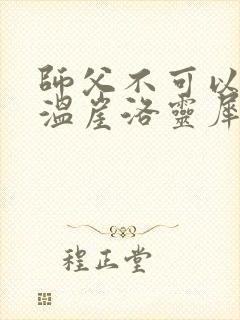 師父不可以
溫崖洛靈犀
程正堂